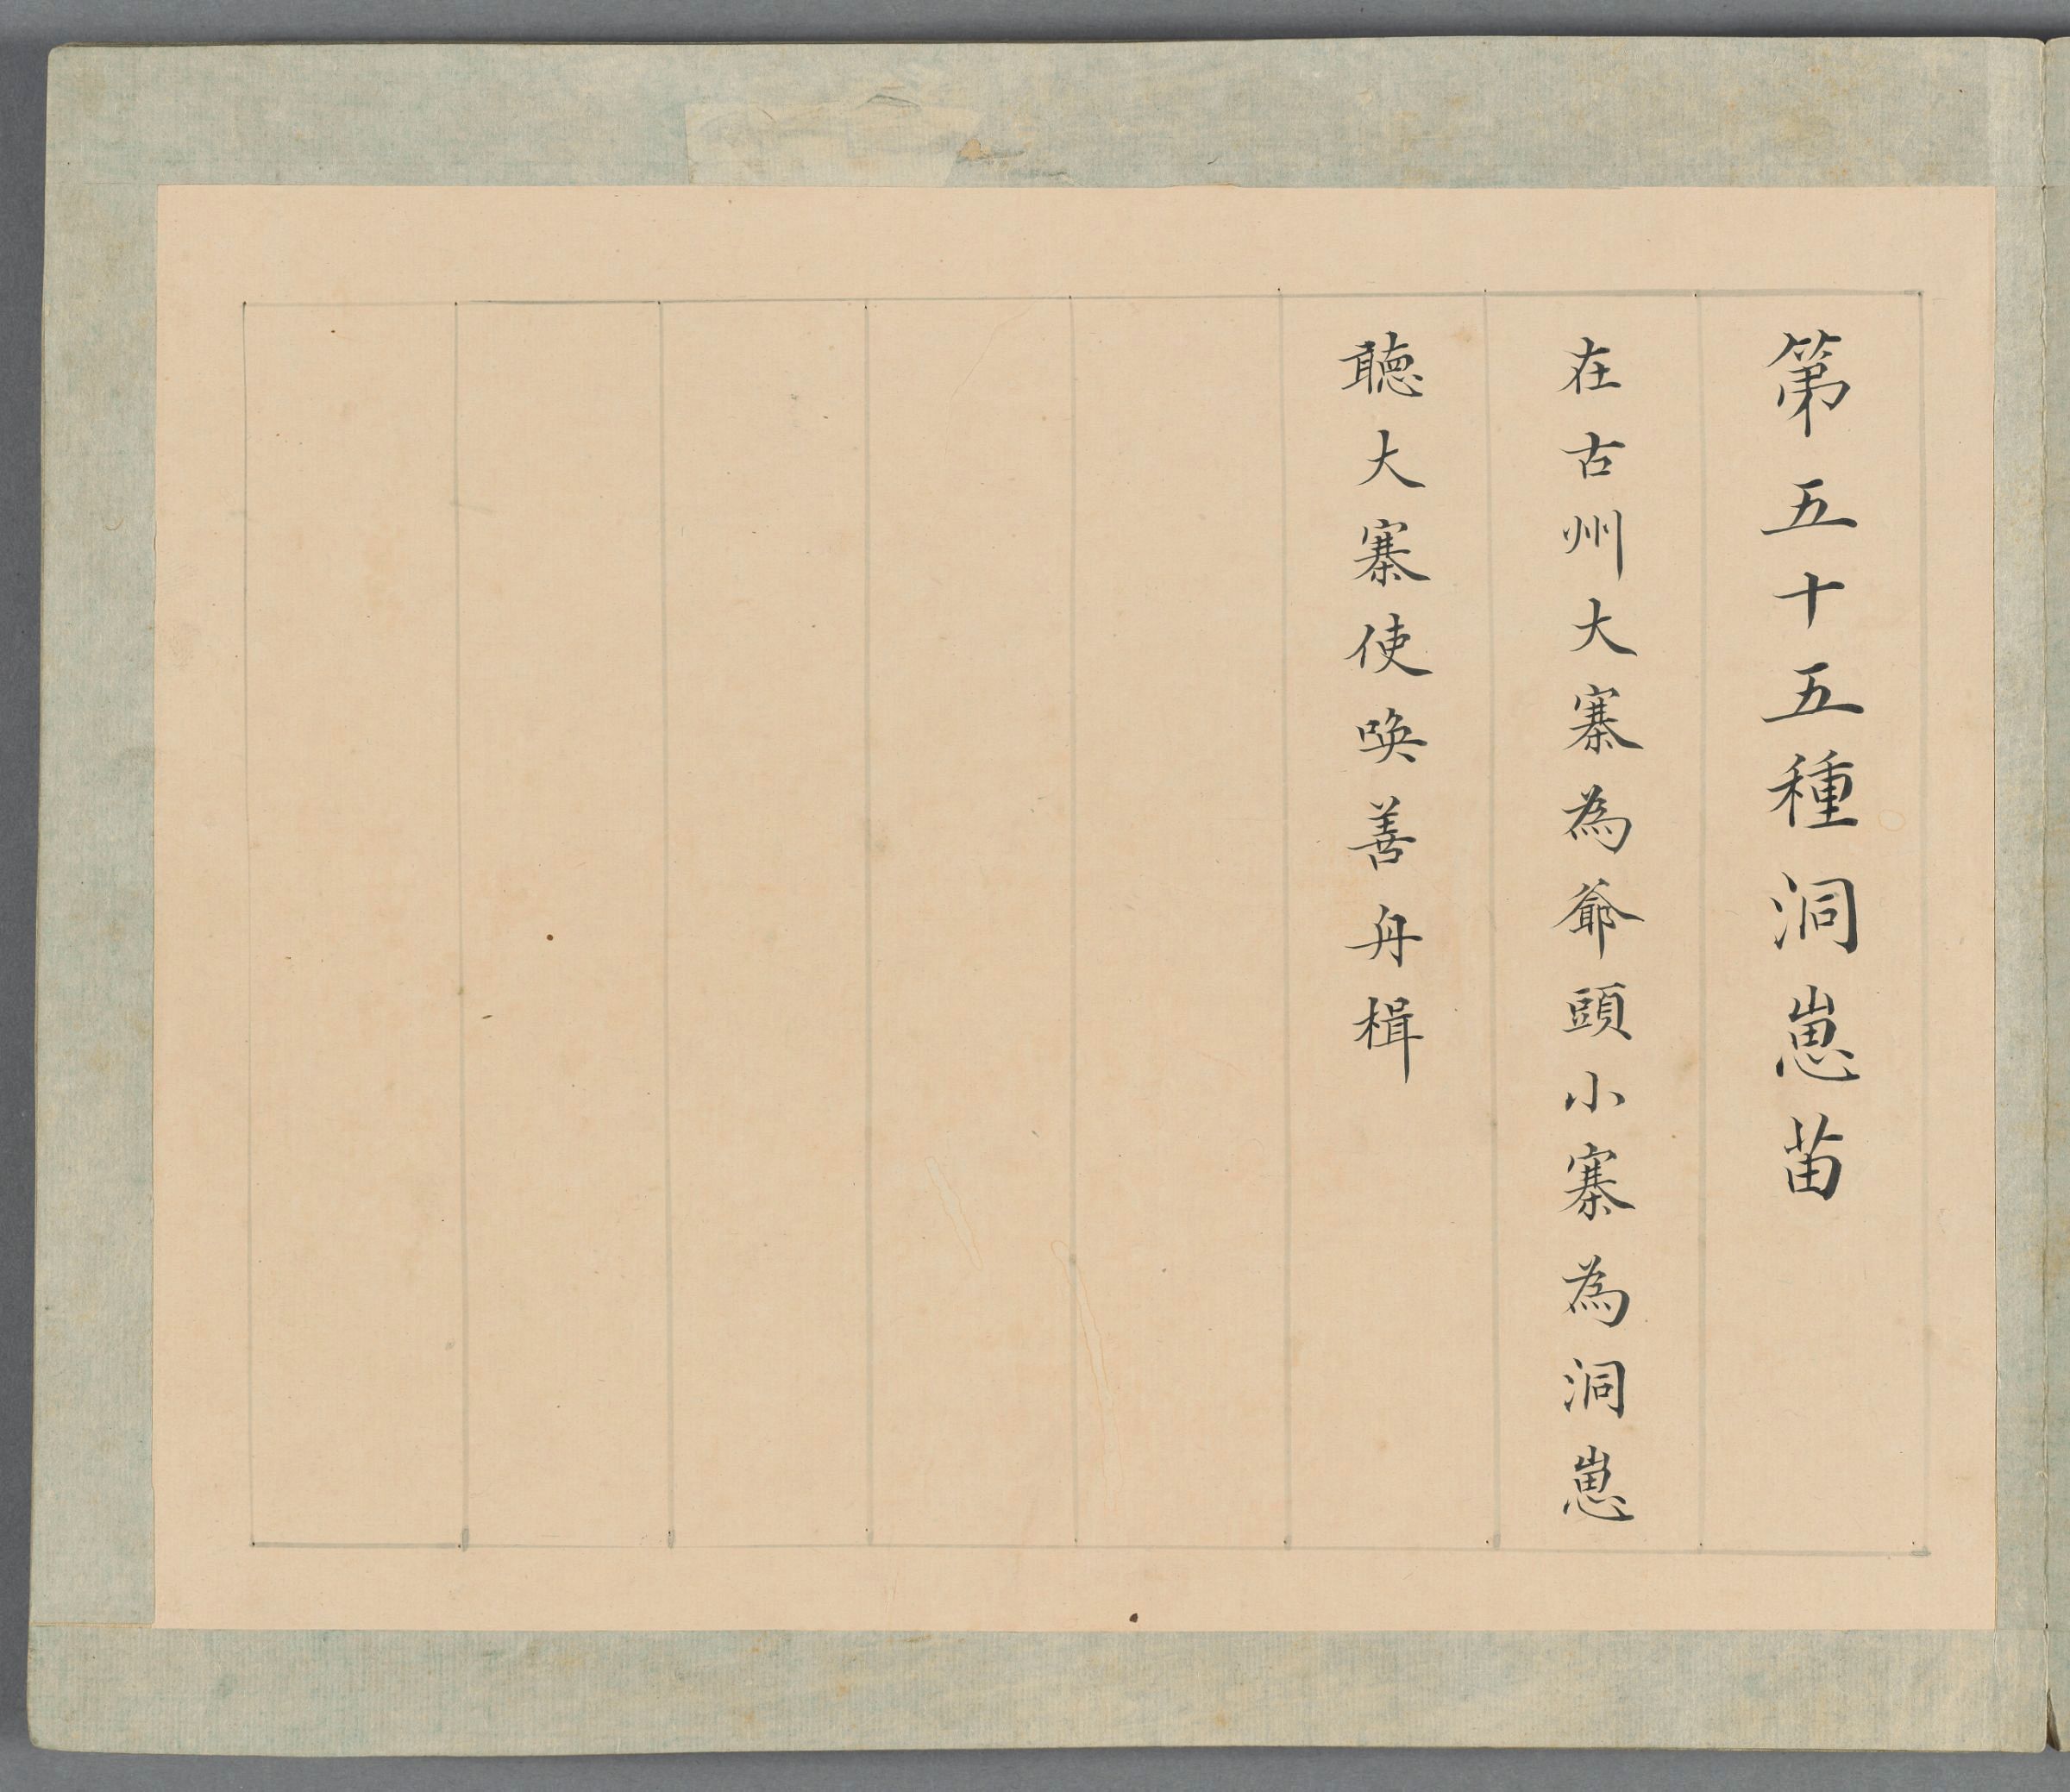 第五十五種洞崽苗
在古州大寨為爺頭小寨為洞崽
聽大寨使喚善舟楫